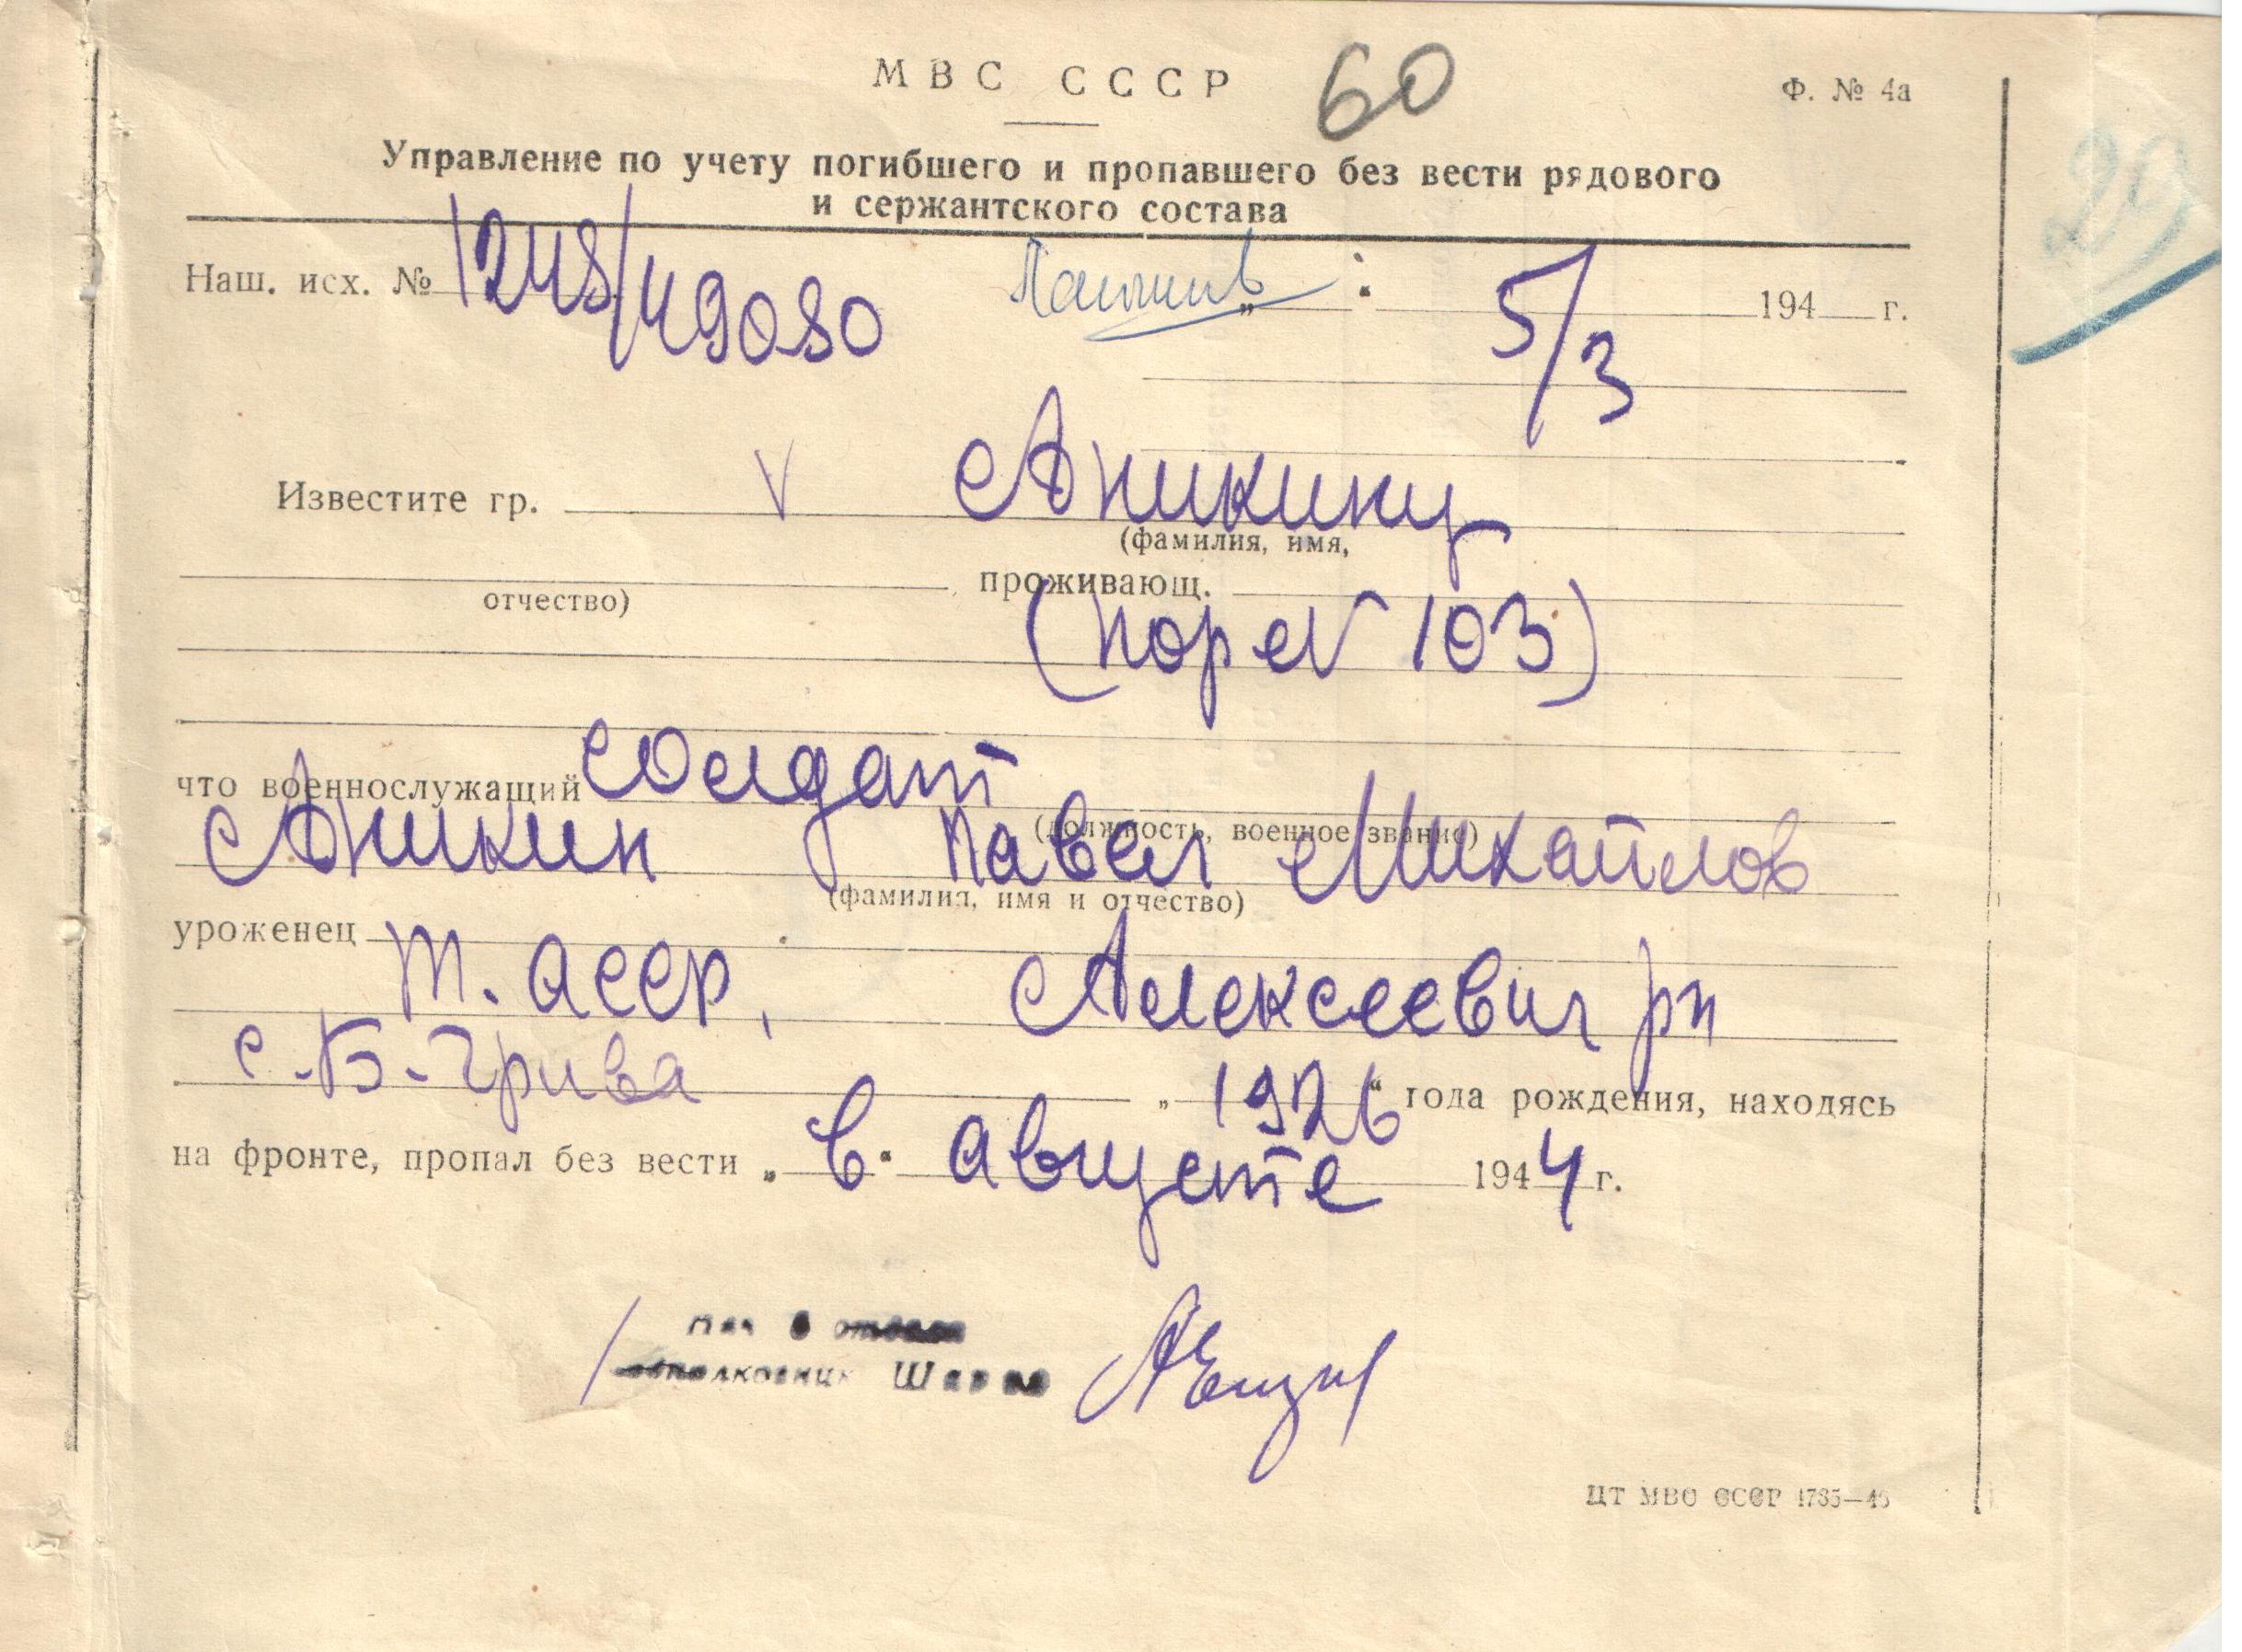 МВС СССР 60
Ф. № 4а
29
Управление по учету погибшего и пропавшего без вести рядового
и сержантского состава
Наш. исх. № 1248/49080 „ “ 5/3 194 г.
Известите гр. V Аникину
(фамилия, имя,
отчество) проживающ.
(пор № 103)
что военнослужащий солдат
(должность, военное звание)
Аникин Павел Михайлов
(фамилия, имя и отчество)
уроженец
Т. АССР, Алексеевич рн
с. Б-Грива „1926“ года рождения, находясь
на фронте, пропал без вести „в“ августе 1944 г.
ЦТ МВС СССР 1785—46